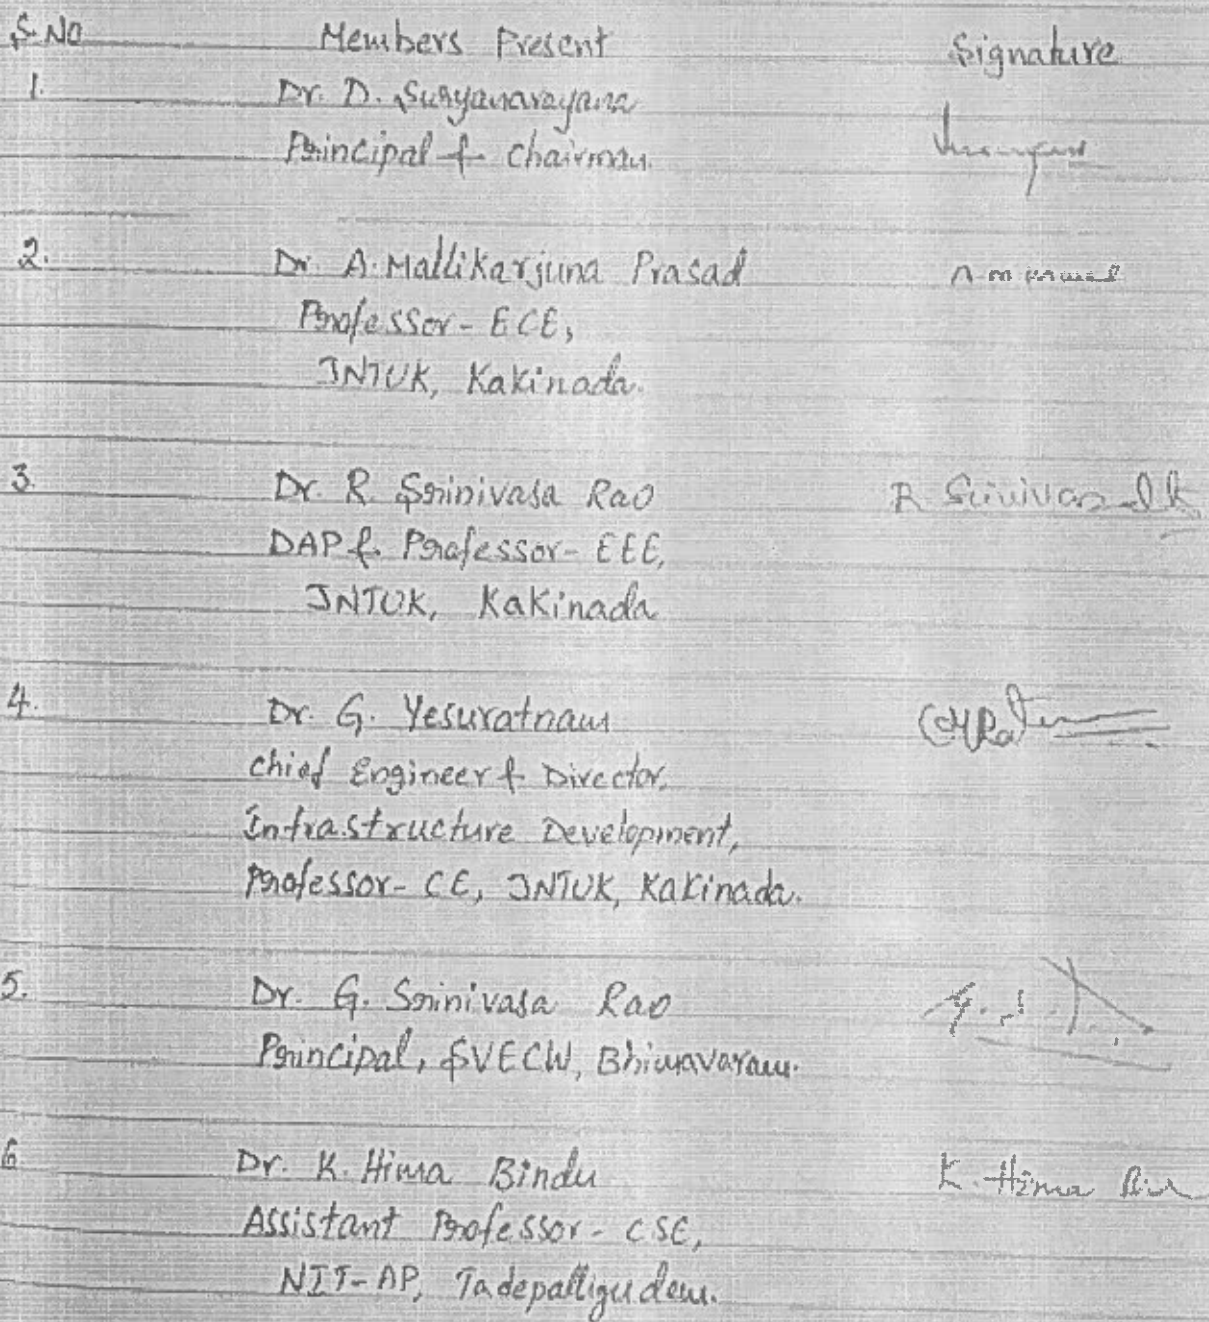 S.No Members Present Signature
1. Dr. D. Suryanarayana
Principal & Chairman.
2. Dr. A. Mallikarjuna Prasad
Professor - ECE,
JNTUK, Kakinada.
3. Dr. R. Srinivasa Rao R Srinivas
DAP & Professor - EEE,
JNTUK, Kakinada
4. Dr. G. Yesuratnam
Chief Engineer & Director,
Infrastructure Development,
Professor - CE, JNTUK, Kakinada.
5. Dr. G. Srinivasa Rao
Principal, SVECW, Bhimavaram.
6 Dr. K. Hima Bindu K. Hima
Assistant Professor - CSE,
NIT-AP, Tadepalligudem.